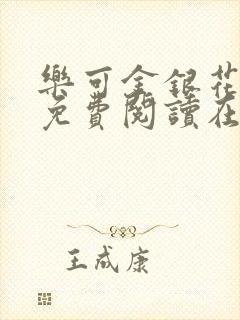 樂可金銀花
免費閱讀在
王成康